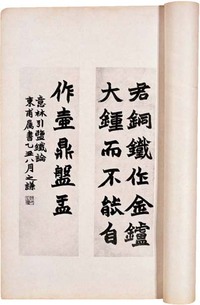 君銅鐵作金鑪
大鍾而不能自
作壷鼎盤盂
意林引鹽鐵論
東甫屬書乙丑八月之謙